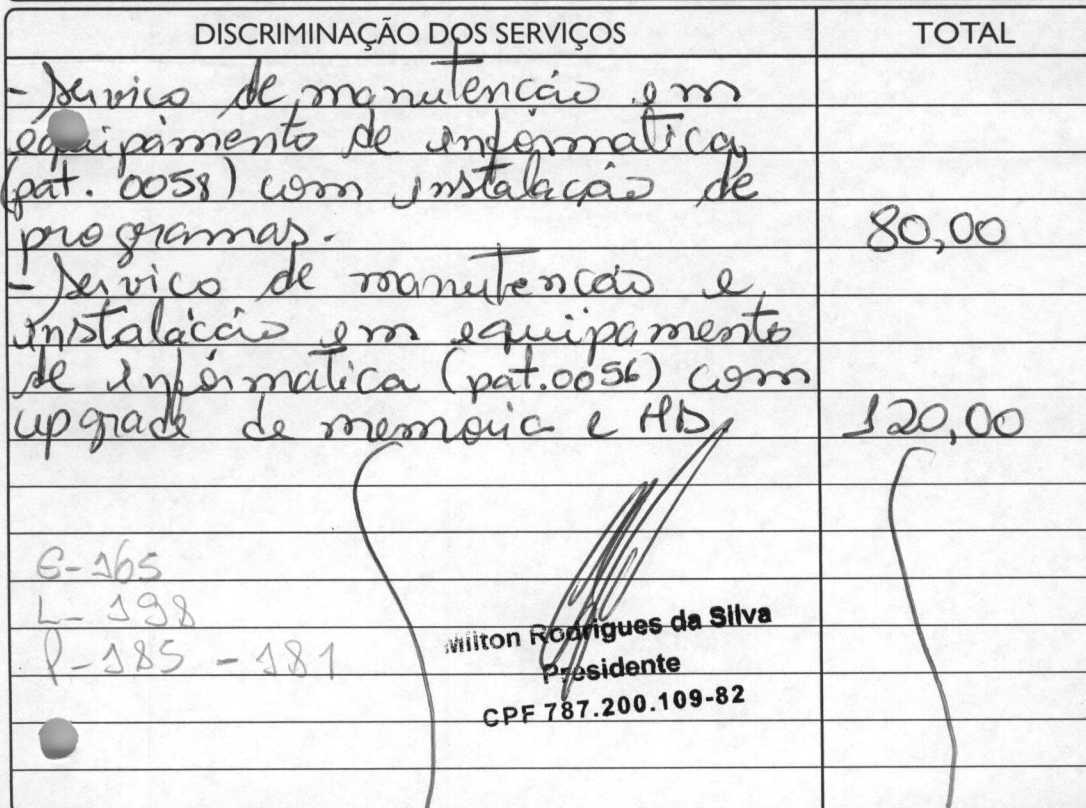 DISCRIMINAÇÃO DOS SERVIÇOS TOTAL
- Serviço de manutenção em
equipamento de informática,
(pat. 0058) com instalação de
programas. 80,00
- Serviço de manutenção e
instalação em equipamento
de informática (pat.0056) com
upgrade de memoria e HD 120,00
E-165
L-198
P-185 - 181
Milton Rodrigues da Silva
Presidente
CPF 787.200.109-82